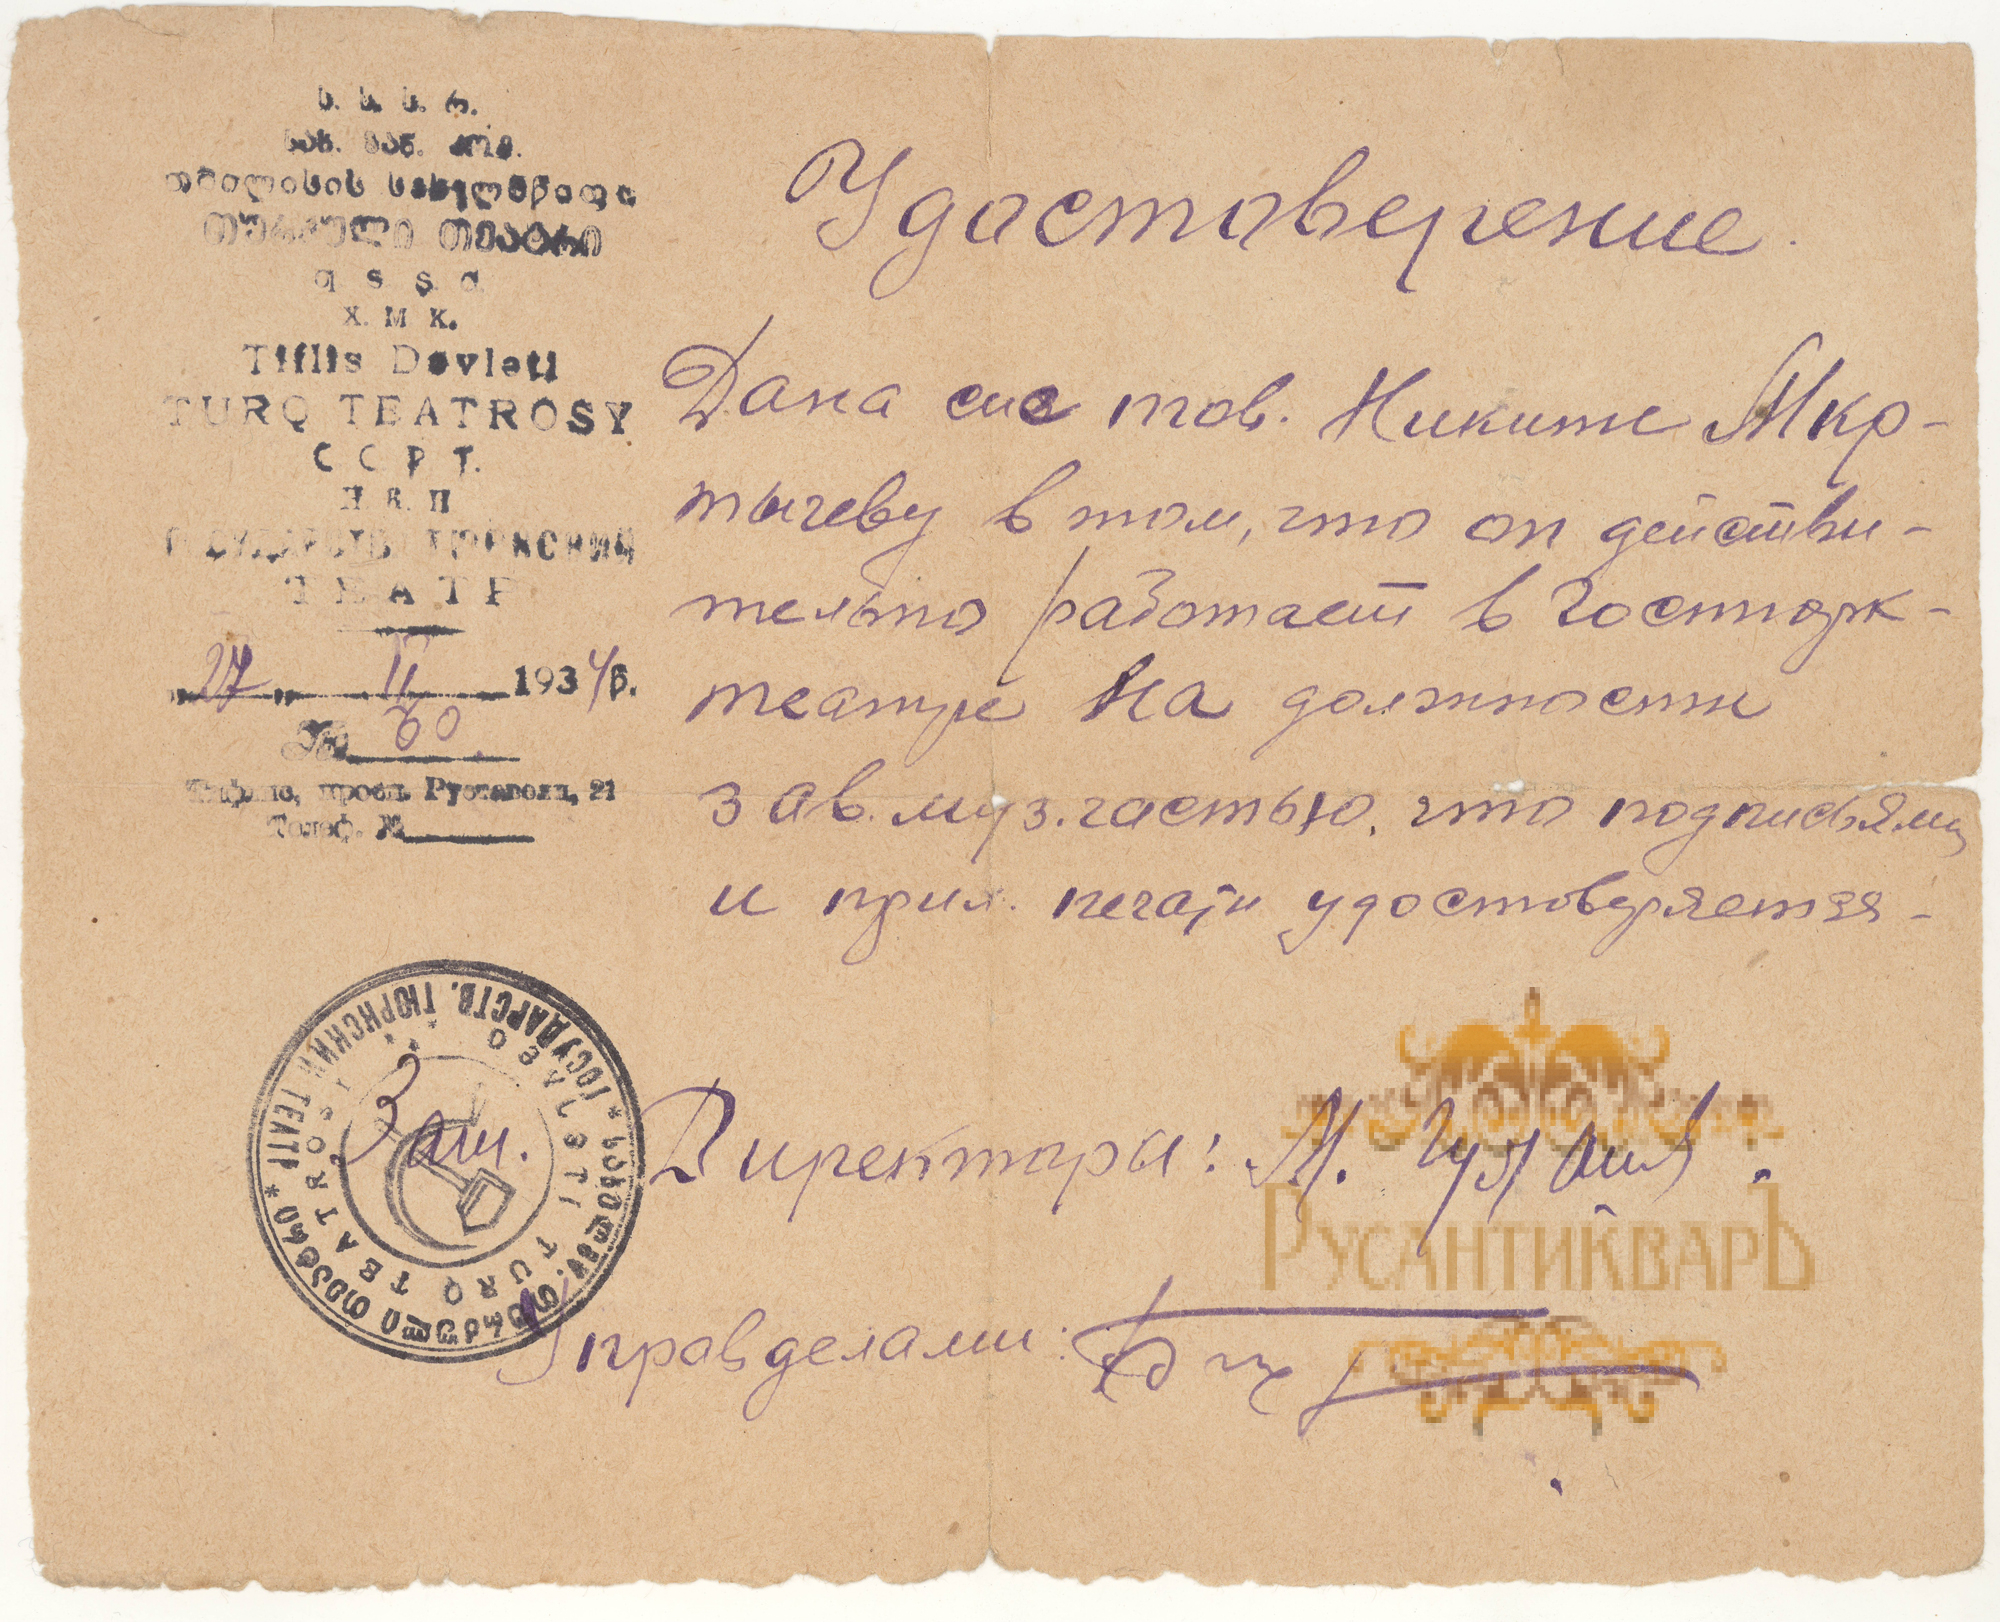 ს. ს. ს. რ.
სახ. გან. კომ.
თბილისის სახელმწიფო
თურქული თეატრი
q s ş c
X. M K.
Tiflis Dɵvləti
TURQ TEATROSY
С С Р Г.
Н К П
ГОСУДАРСТВ ТЮРКСКИЙ
ТЕАТР
„27„ II 1934 წ.
№ 60
Тифлис, просп. Руставели, 21
Телеф. №
Удостоверение.
Дана сие тов. Никите Мкр-
тычеву в том, что он действи-
тельно работает в Гостюрк-
театре на должности
зав. муз. частью, что подписями
и прил. печати удостоверяется-
* ГОСУДАРСТВ. ТЮРКСКИЙ ТЕАТР *
თურქული თეატრი
DɵVLƏTI TURQ TEATROSI
Зам. Директора: М.
Управделами:
РУСАНТИКВАРЪ